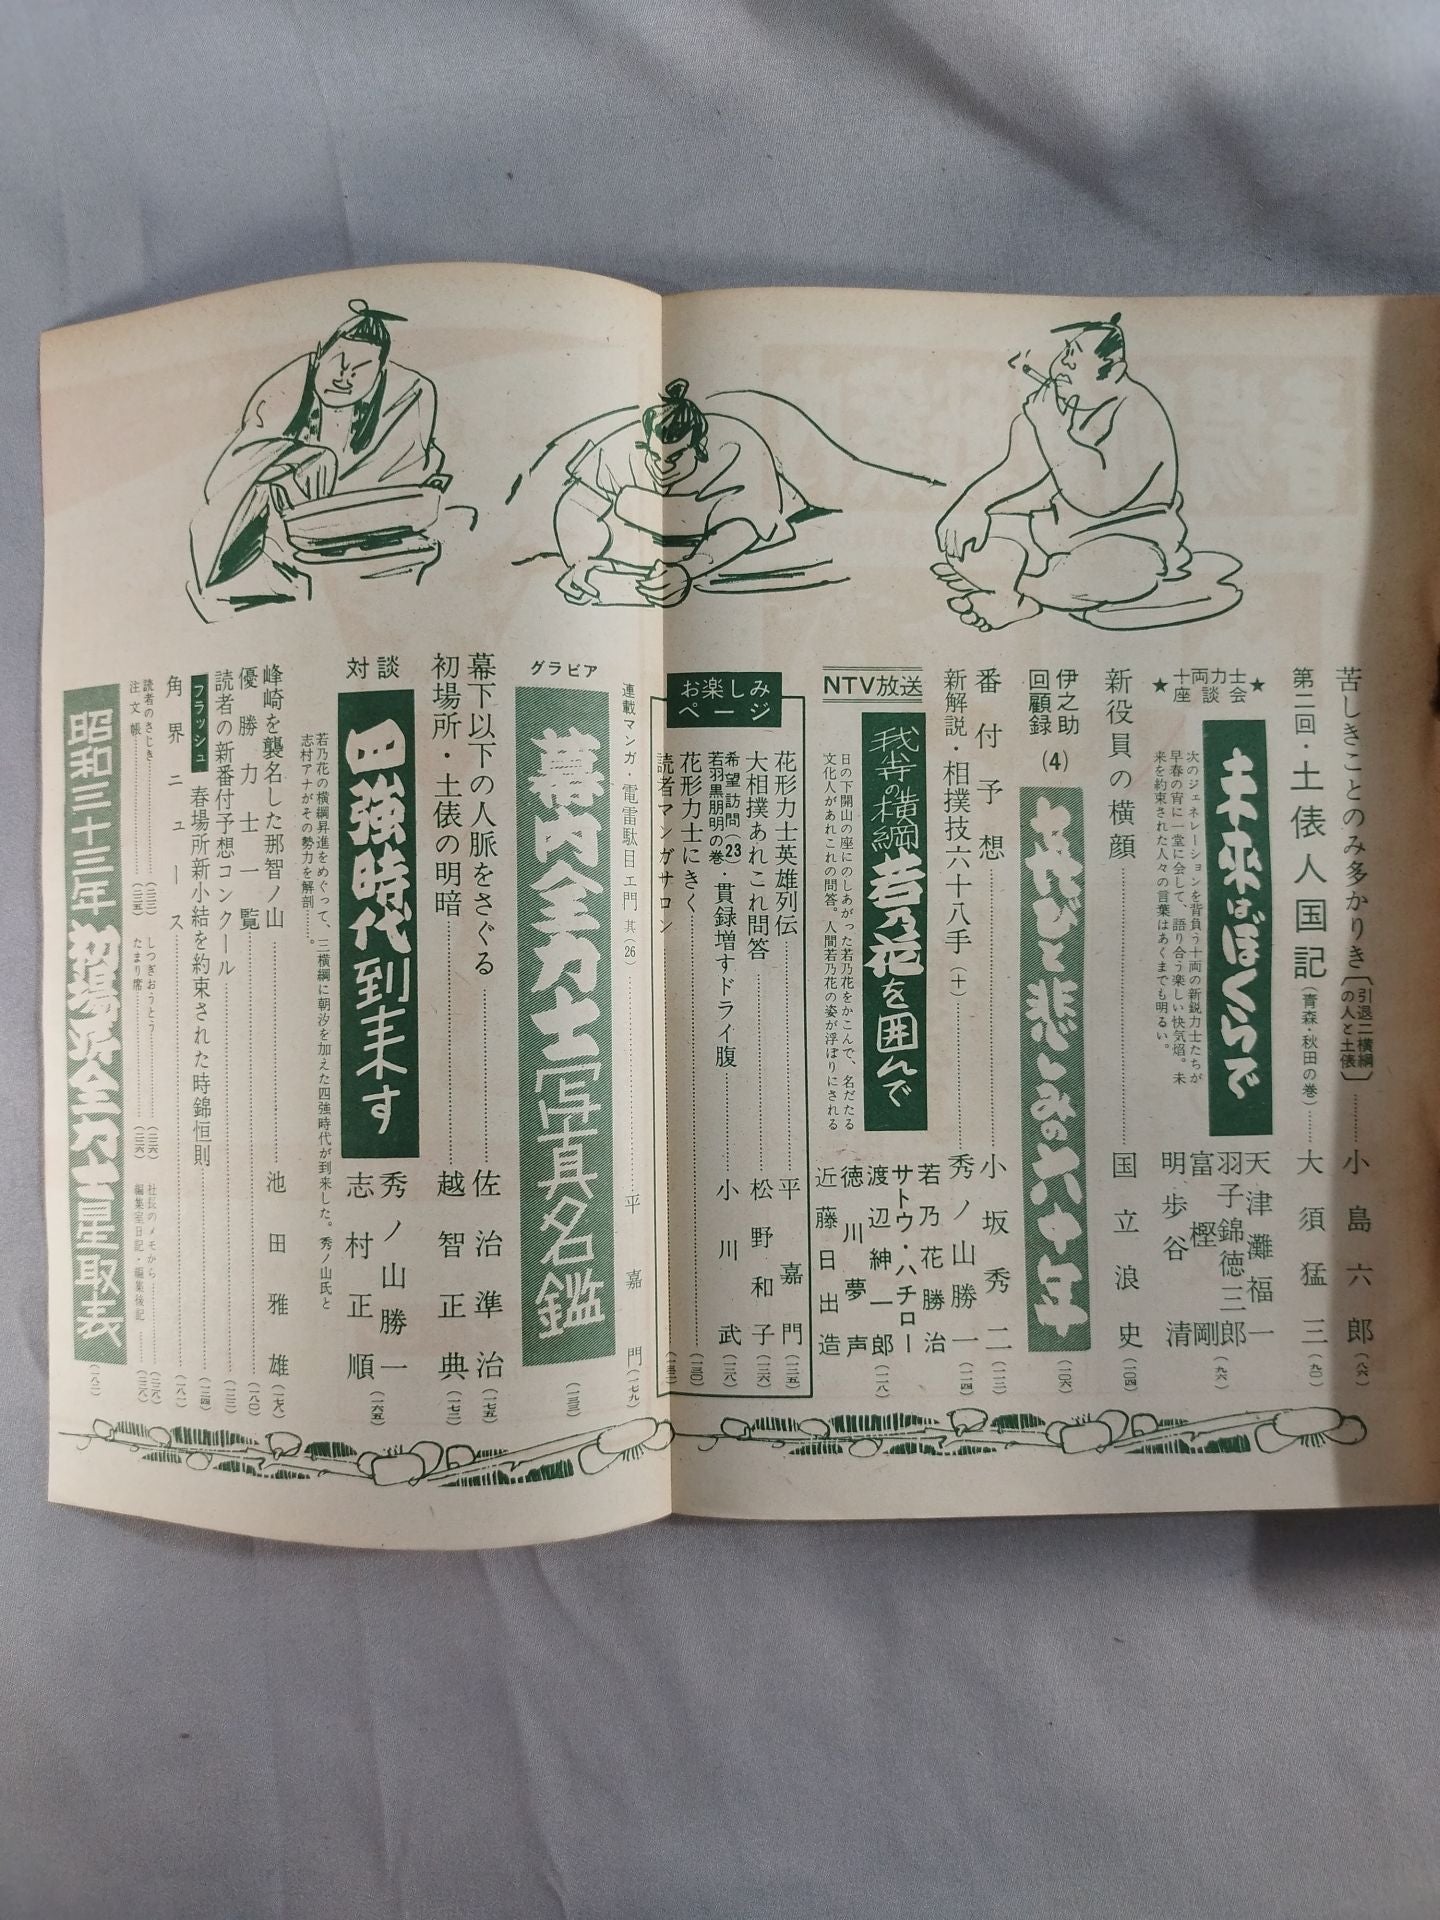 苦しきことのみ多かりき〔引退二横綱の人と土俵〕……小島六郎(八六)
第二回・土俵人国記(青森・秋田の巻)……大須猛三(九〇)
★十両力士座談会★
未来はぼくらで
次のジェネレーションを背負う十両の新鋭力士たちが
早春の宵に一堂に会して、語り合う楽しい快気焰。未
来を約束された人々の言葉はあくまでも明るい。
天津灘福一
羽子錦徳三郎
富樫剛
明歩谷清
(九六)
新役員の横顔……国立浪史(一〇四)
伊之助回顧録(4)
喜びと悲しみの六十年(一〇六)
番付予想……小坂秀二(一一二)
新解説・相撲技六十八手(十)……秀ノ山勝一(一一四)
NTV放送
我等の横綱若乃花を囲んで
日の下開山の座にのしあがった若乃花をかこんで、名だたる
文化人があれこれの問答。人間若乃花の姿が浮ぼりにされる
若乃花勝治
サトウ・ハチロー
渡辺紳一郎
徳川夢声
近藤日出造
(一一八)
お楽しみページ
花形力士英雄列伝……平嘉門(一二五)
大相撲あれこれ問答……松野和子(一二六)
希望訪問(23)若羽黒朋明の巻・貫録増すドライ腹……小川武(一二八)
花形力士にきく……(一三〇)
読者マンガサロン……(一三二)
連載マンガ・電雷駄目エ門 其(26)……平嘉門(一七九)
グラビア
幕内全力士写真名鑑(一三三)
幕下以下の人脈をさぐる……佐治準治(一七五)
初場所・土俵の明暗……越智正典(一七二)
対談
四強時代到来す
若乃花の横綱昇進をめぐって、三横綱に朝汐を加えた四強時代が到来した。秀ノ山氏と
志村アナがその勢力を解剖……。
秀ノ山勝一
志村正順
(一六五)
峰崎を襲名した那智ノ山……池田雅雄(一七八)
優勝力士一覧……(一八〇)
読者の新番付予想コンクール……(二三三)
フラッシュ
春場所新小結を約束された時錦恒則……(二二四)
角界ニュース……(一八二)
読者のさじき……(二三三)
しつぎおうとう……(二二六)
社長のメモから……(二二八)
注文帳……(二三五)
たまり席……(二三六)
編集室日記・編集後記……(二三八)
昭和三十三年初場所全力士星取表(一八二)